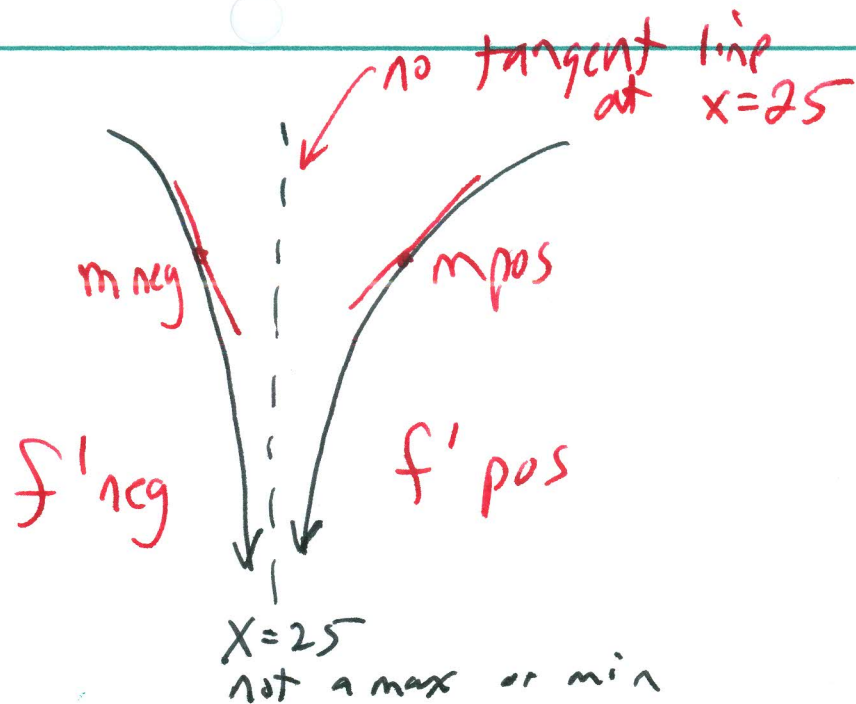 no tangent line
at x=25
m neg
m pos
f' neg
f' pos
X=25
not a max or min